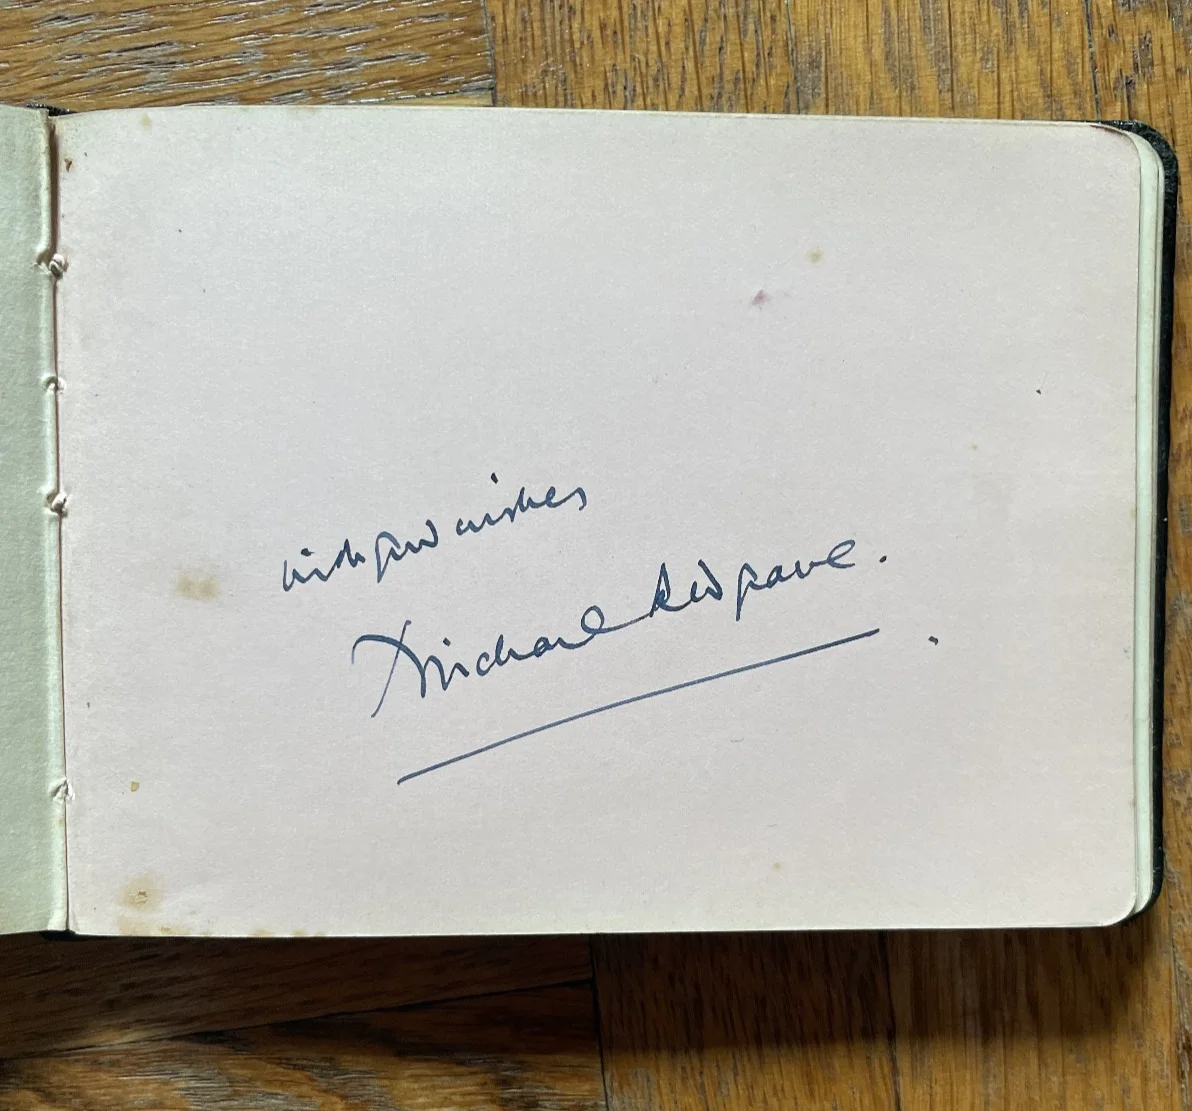 with good wishes
Michael Redgrave.